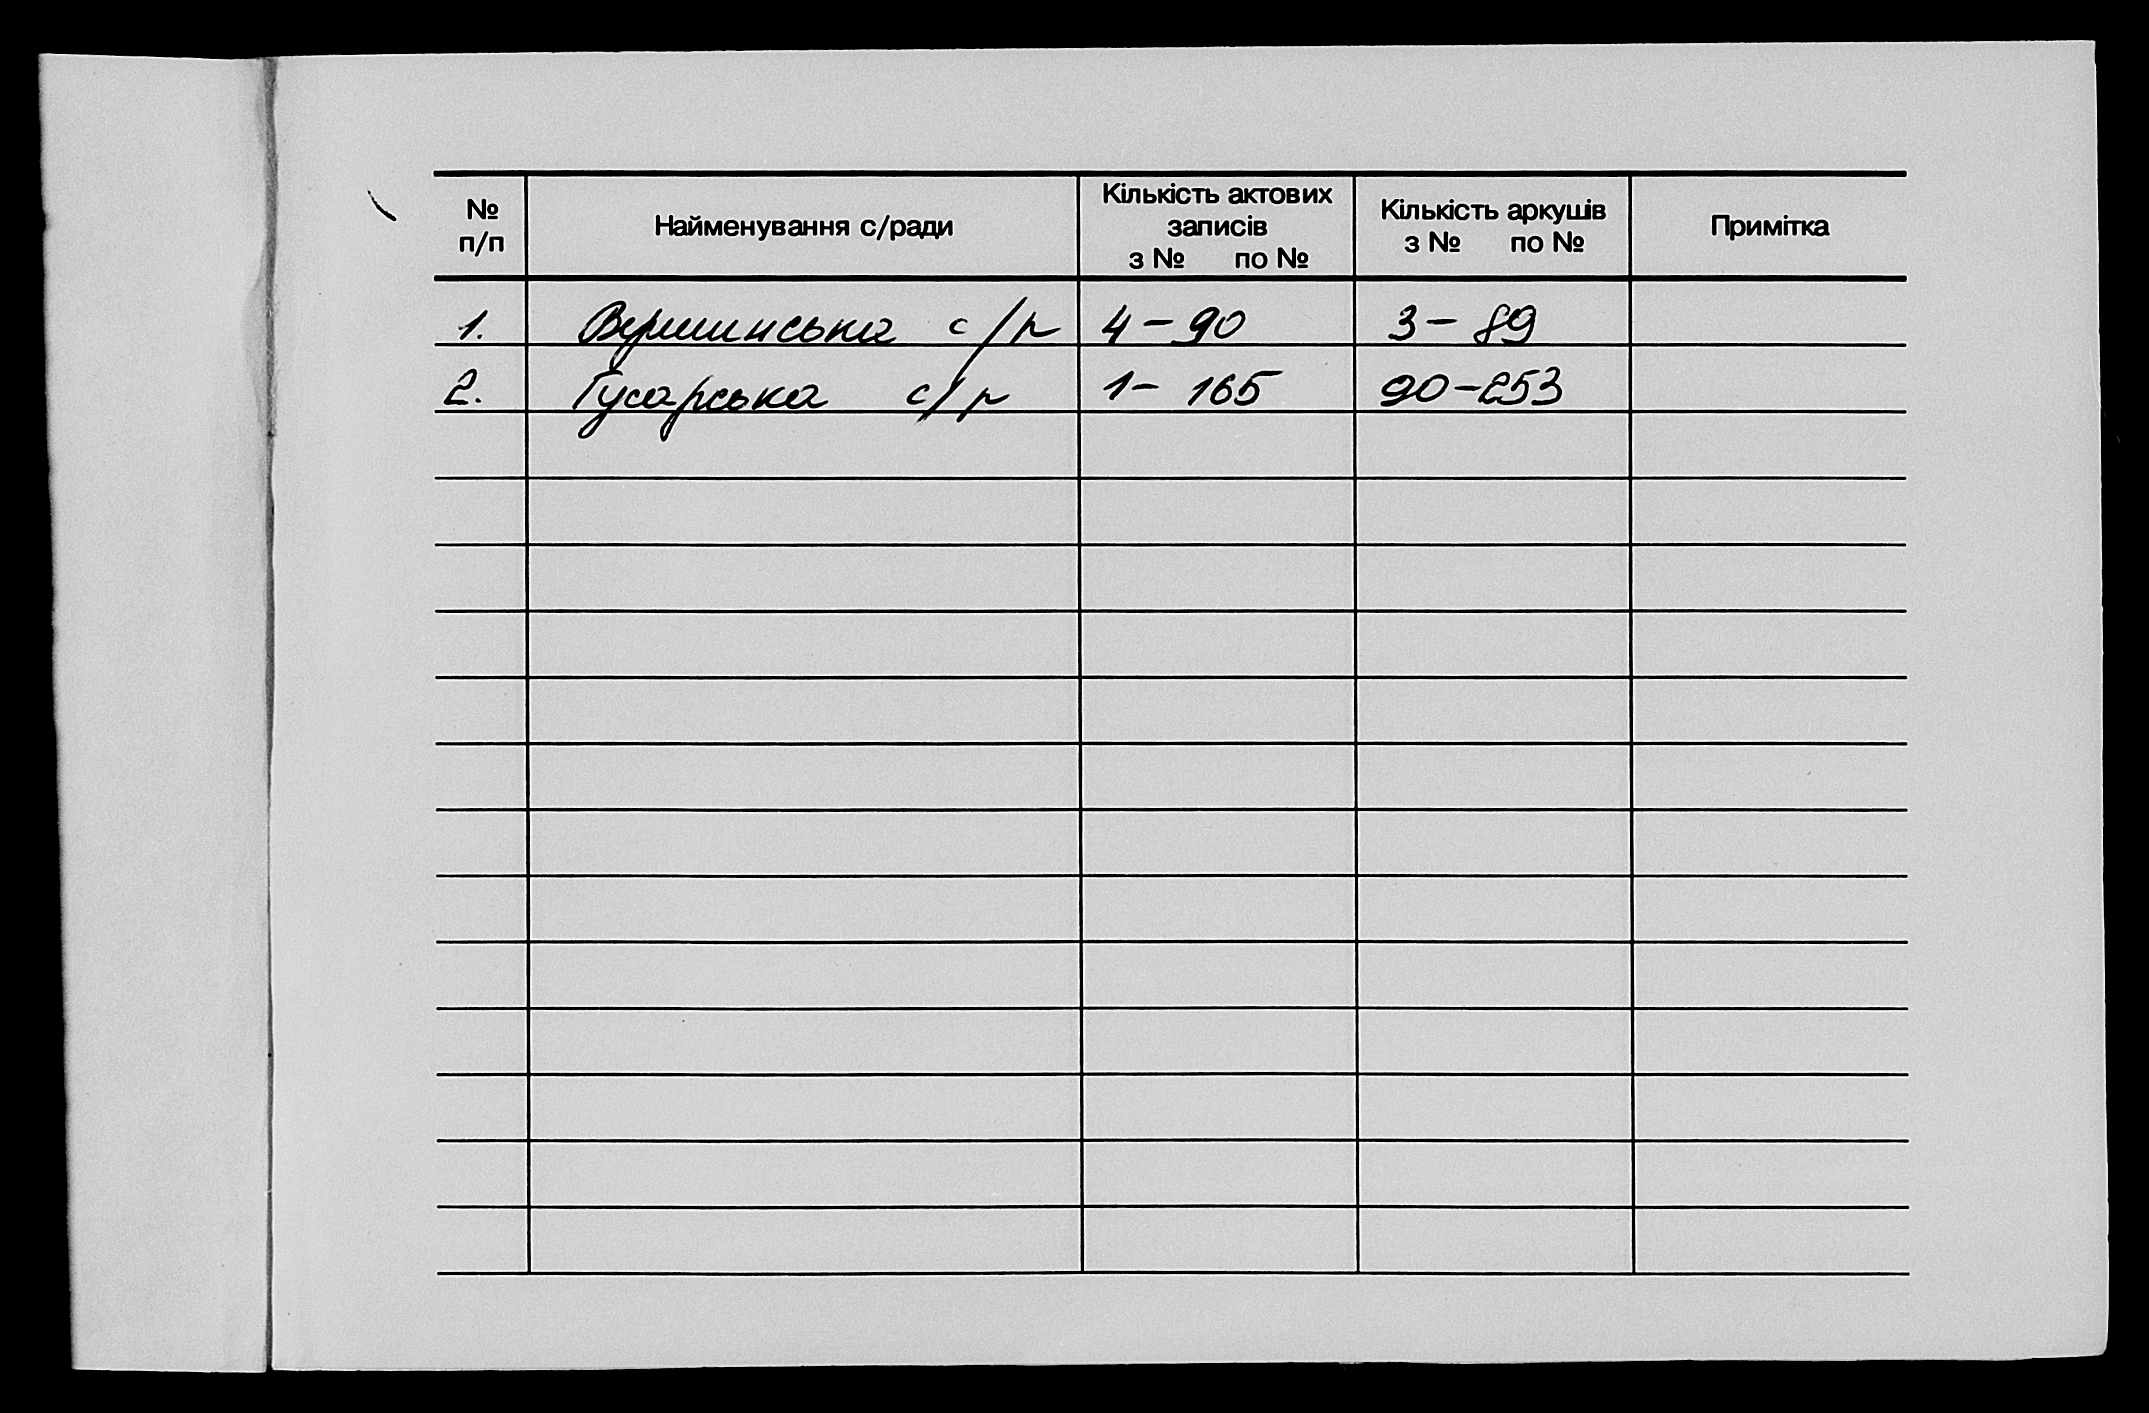 № п/п Найменування с/ради Кількість актових записів з № по № Кількість аркушів з № по № Примітка
1. Вершинська с/р 4-90 3-89
2. Гусарська с/р 1-165 90-253